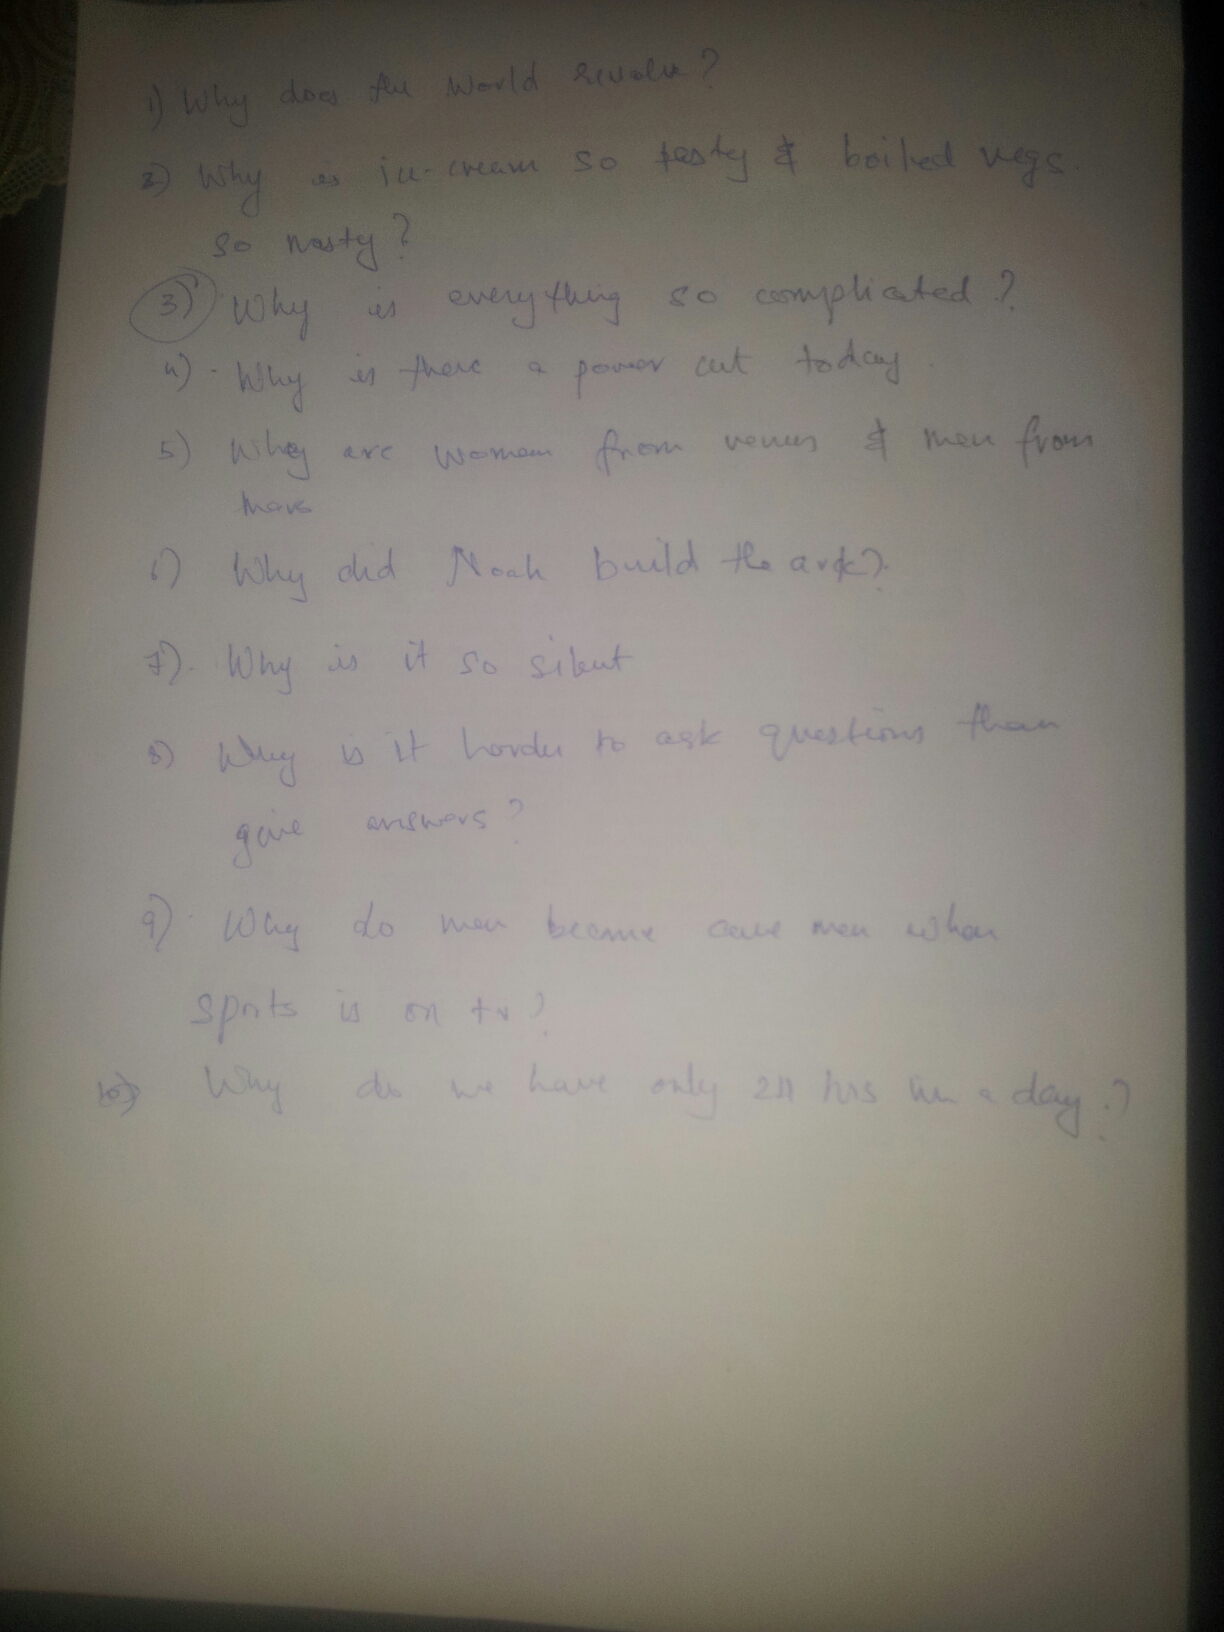 1) Why does the World revolve?
2) Why is ice-cream so tasty & boiled vegs.
so nasty?
3) Why is everything so complicated?
4) Why is there a power cut today.
5) Why are women from venus & men from
mars
6) Why did Noah build the ark?
7) Why is it so silent
8) Why is it harder to ask questions than
give answers?
9) Why do men become cave men when
sports is on tv?
10) Why do we have only 24 hrs in a day?